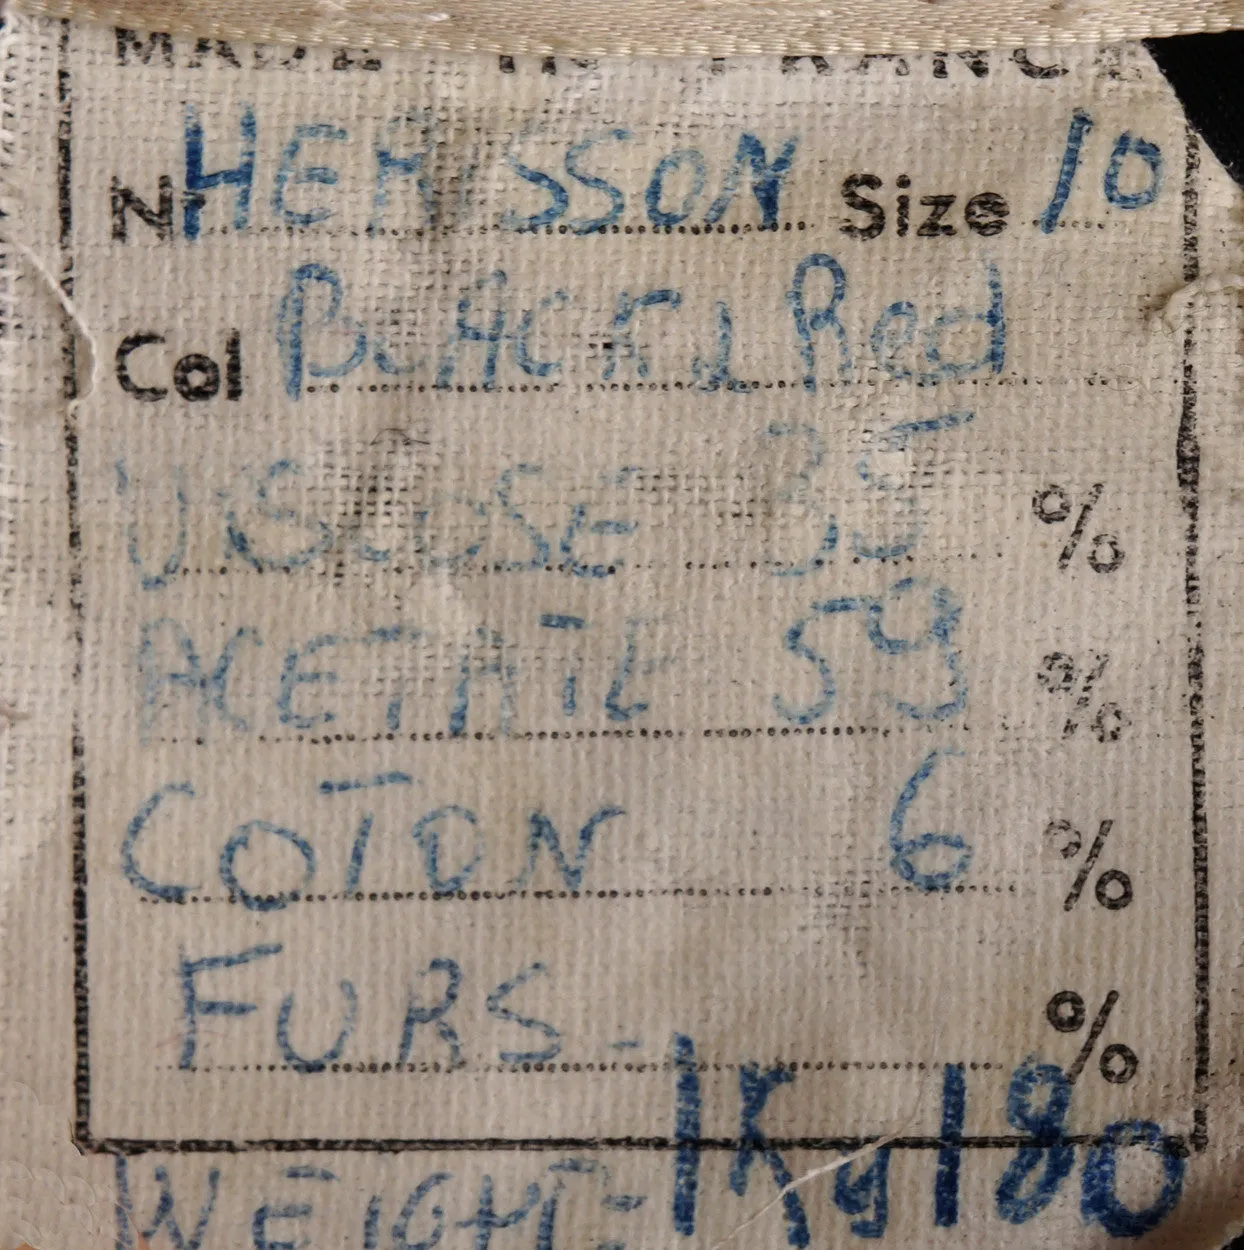 MADE IN FRANCE
Nr HERISSON Size 10
Col BLACK & Red
VISCOSE 35 %
ACETATE 59 %
COTON 6 %
FURS - %
WEIGHT = 1Kg180